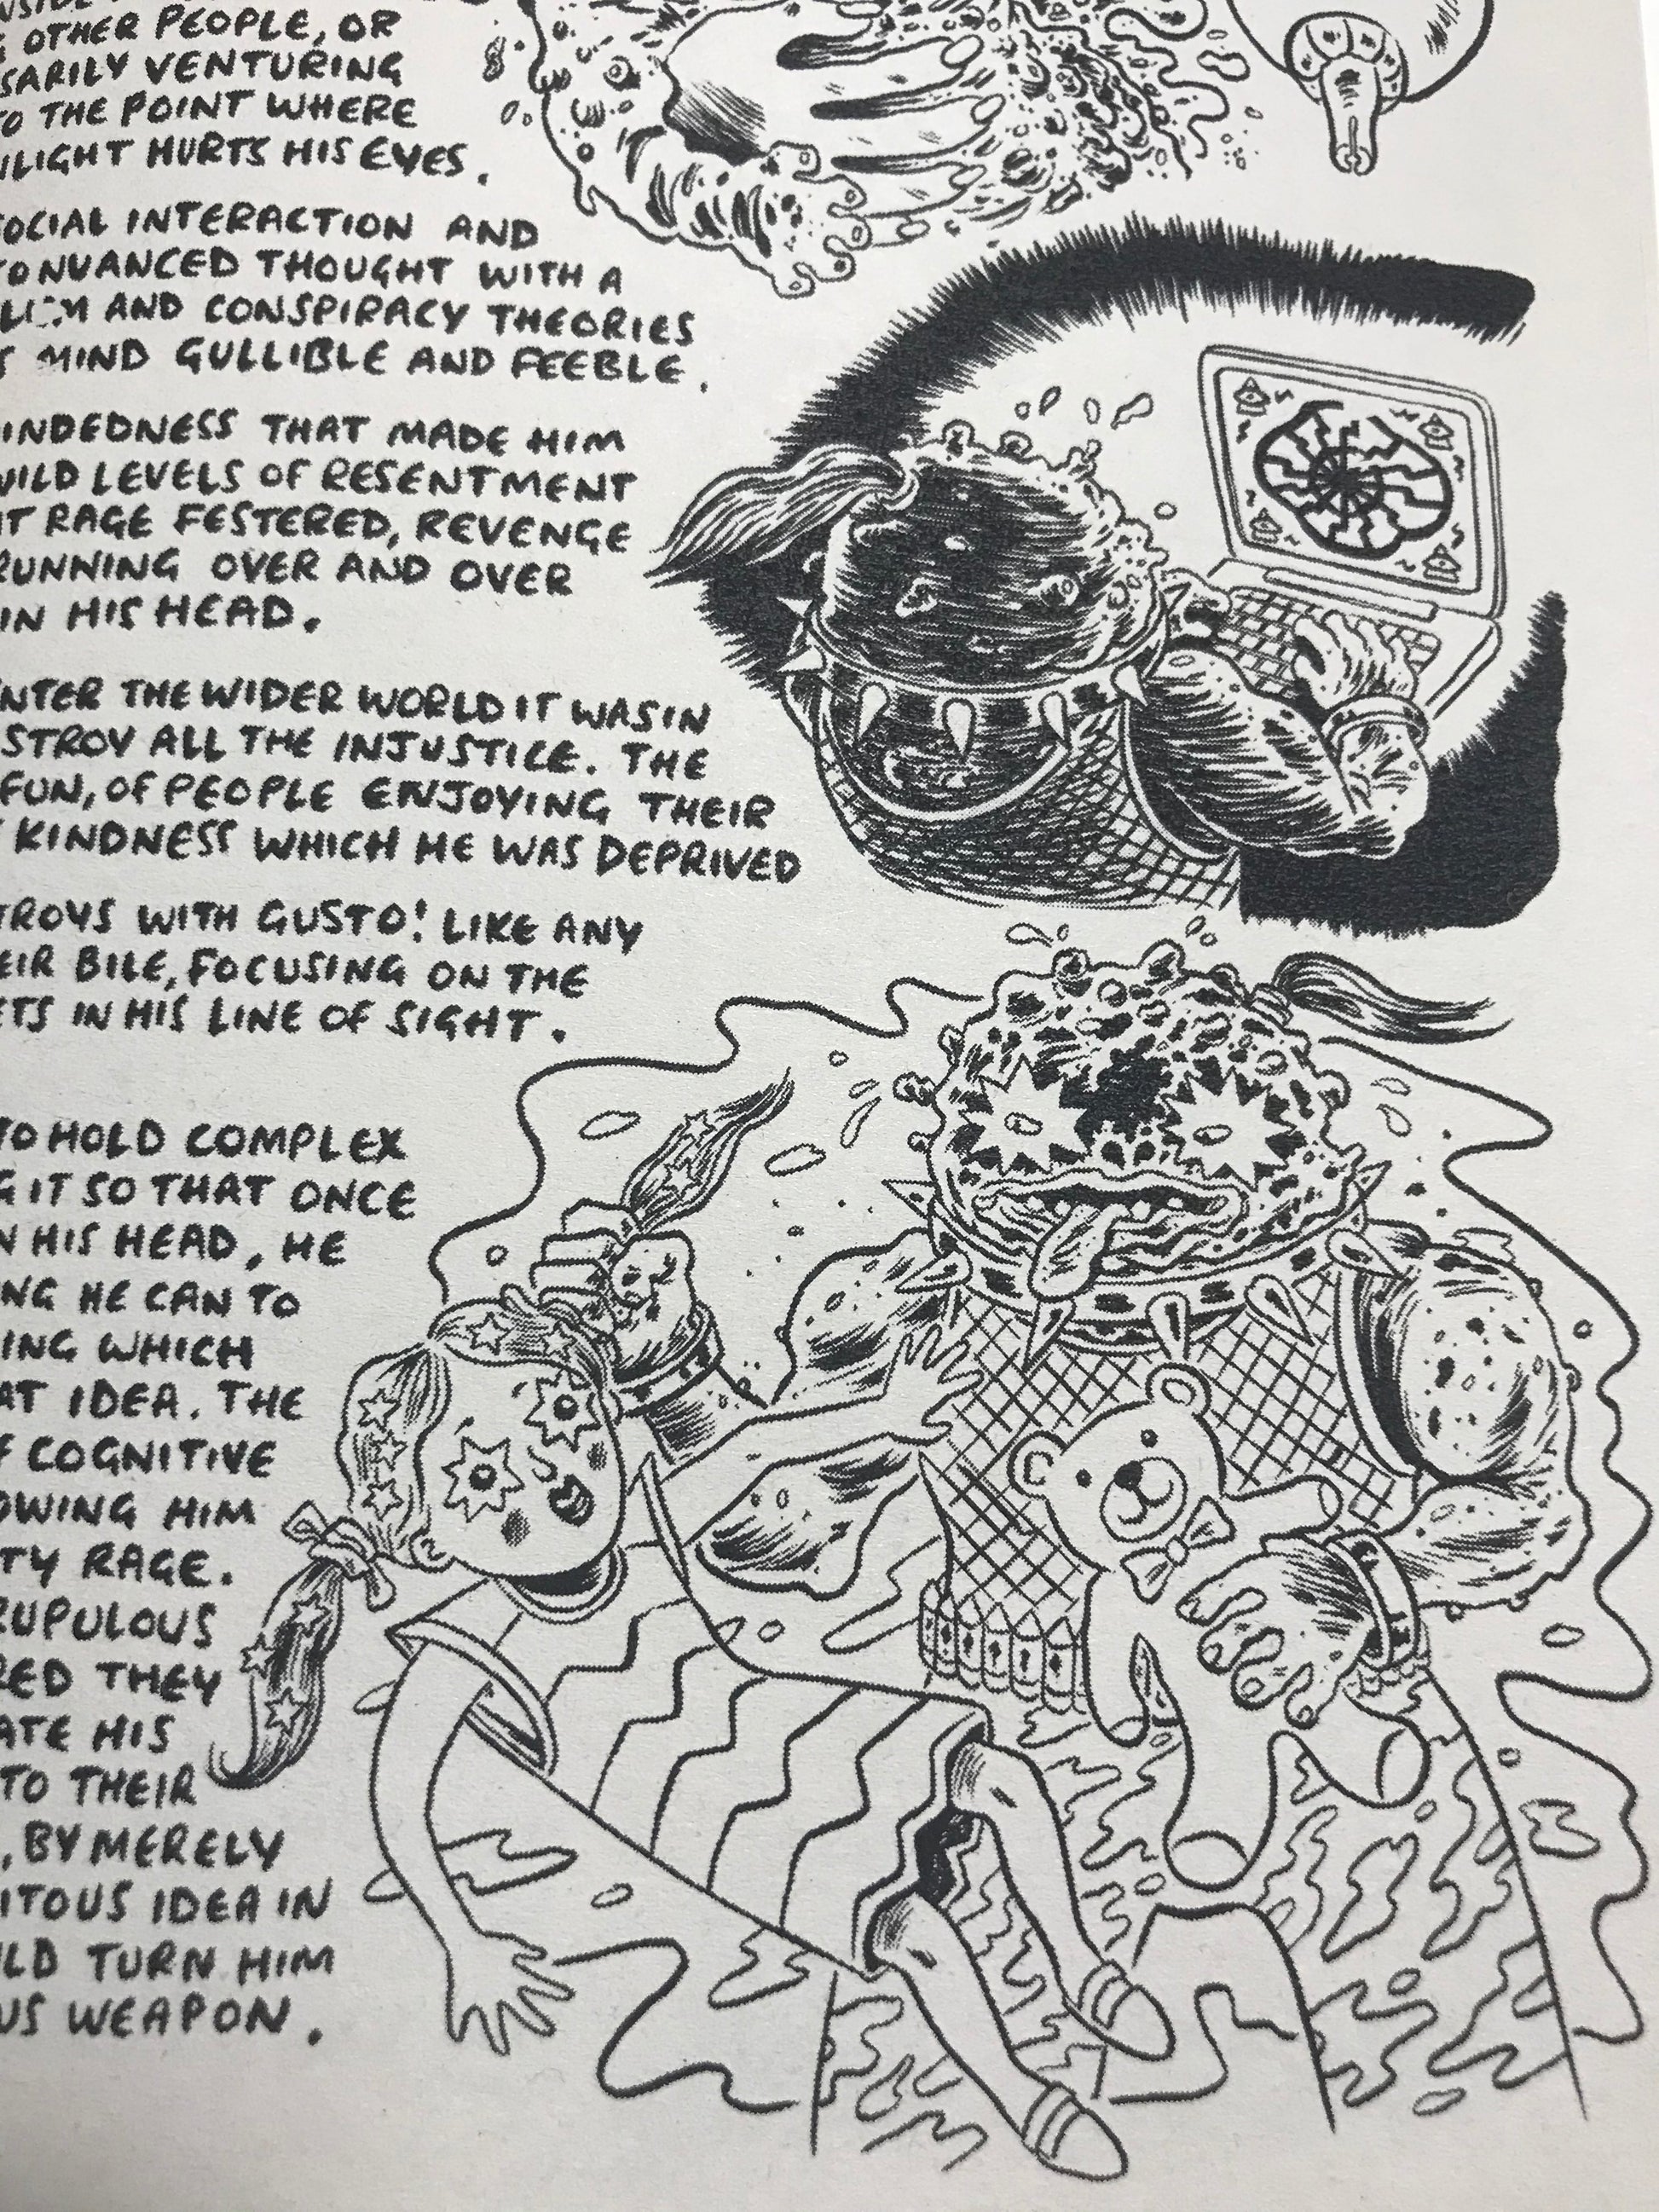 OTHER PEOPLE, OR
SARILY VENTURING
TO THE POINT WHERE
NLIGHT HURTS HIS EYES.
SOCIAL INTERACTION AND
TO NUANCED THOUGHT WITH A
AND CONSPIRACY THEORIES
MIND GULLIBLE AND FEEBLE.
INDEDNESS THAT MADE HIM
UILD LEVELS OF RESENTMENT
RAGE FESTERED, REVENGE
RUNNING OVER AND OVER
IN HIS HEAD.
NTER THE WIDER WORLD IT WAS IN
STROY ALL THE INJUSTICE. THE
FUN, OF PEOPLE ENJOYING THEIR
KINDNESS WHICH HE WAS DEPRIVED
TROYS WITH GUSTO! LIKE ANY
EIR BILE, FOCUSING ON THE
ETS IN HIS LINE OF SIGHT.
TO HOLD COMPLEX
G IT SO THAT ONCE
N HIS HEAD, HE
NG HE CAN TO
ING WHICH
AT IDEA. THE
F COGNITIVE
OWING HIM
TY RAGE.
RUPULOUS
RED THEY
ATE HIS
TO THEIR
, BY MERELY
ITOUS IDEA IN
LD TURN HIM
US WEAPON.